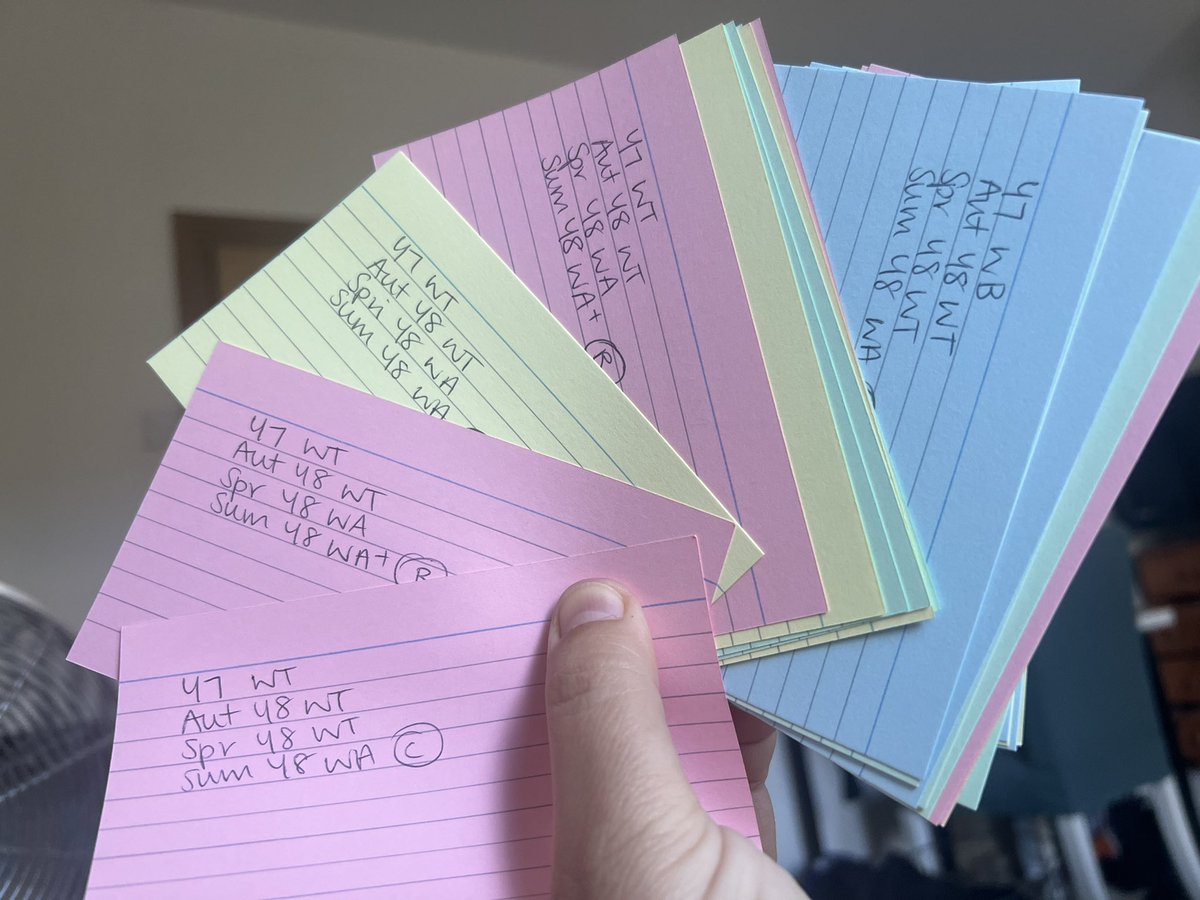 Y7 WT
Aut Y8 WT
Spr Y8 WT
Sum Y8 WA C
Y7 WT
Aut Y8 WT
Spr Y8 WA
Sum Y8 WA+ R
Y7 WT
Aut Y8 WT
Spri Y8 WA
Sum Y8 WA
Y7 WT
Aut Y8 WT
Spr Y8 WA
Sum Y8 WA+ R
Y7 WB
Aut Y8 WT
Spr Y8 WT
Sum Y8 WA